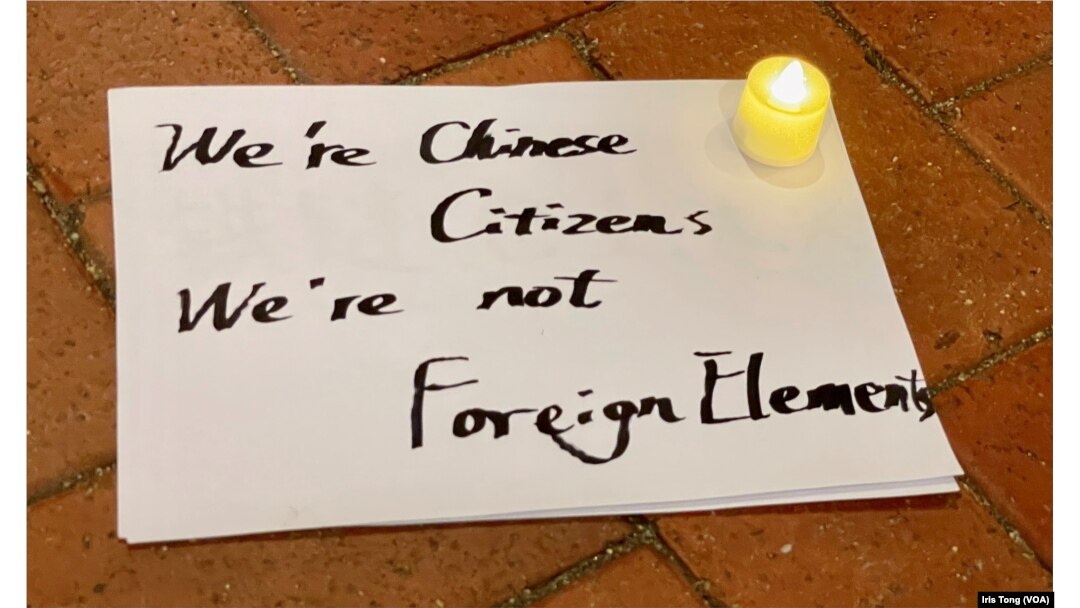 We're Chinese
Citizens
We're not
Foreign Elements
Iris Tong (VOA)